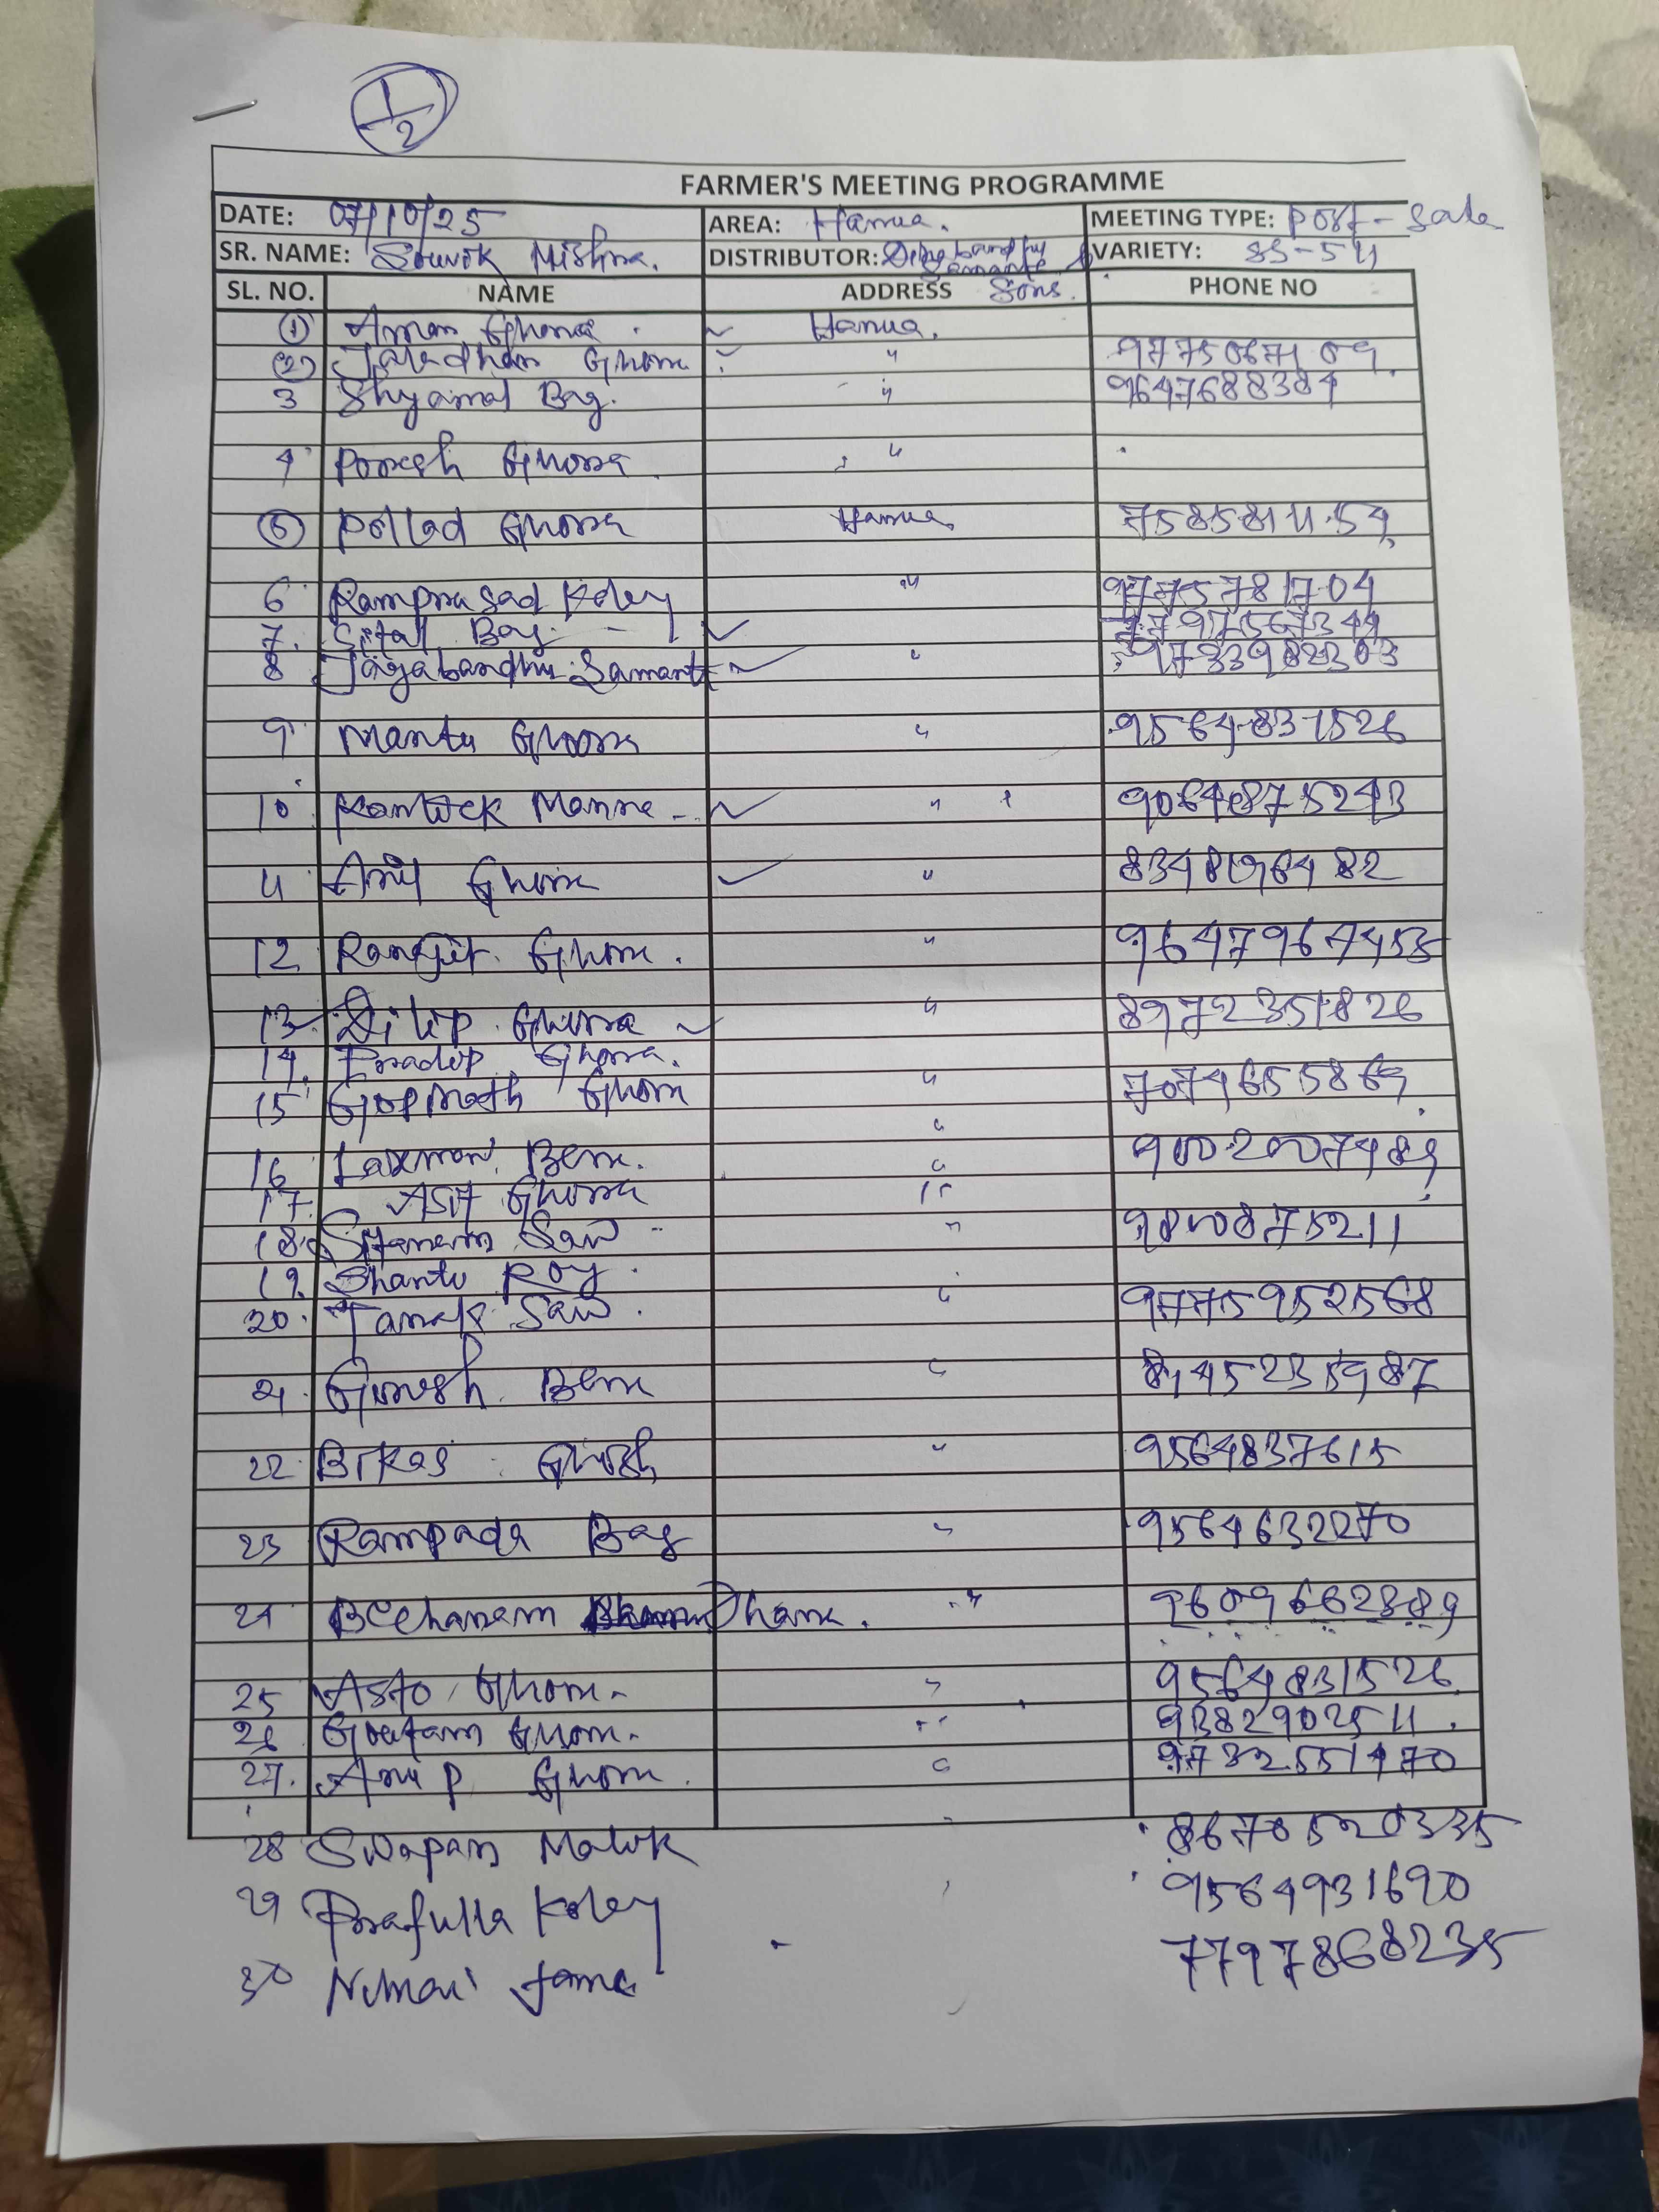 1/2
FARMER'S MEETING PROGRAMME
DATE: 07/10/25 AREA: Hanua. MEETING TYPE: Post-Sale
SR. NAME: Souvik Mishra. DISTRIBUTOR: Samanta & Sons. VARIETY: SS-54
SL. NO. NAME ADDRESS PHONE NO
(1) Ghora Hanua.
(2) Ghora " 9775067109
3 Shyamal Bag. " 9647688384
4 Poresh Ghora "
(5) Pollad Ghora Hanua
6 Ramprasad Koley " 9775781704
7. Sital Bag. 7797567349
8 Jagabandhu Samanta " 9733982303
9 Mantu Ghora " 9564831526
10 Kartick Manna " 9064875243
11 Ghora " 8348196482
12 Ranajit Ghora. " 9647967455
13 Dilip Ghora " 8972351826
14. Pradip Ghora.
15 Gopinath Ghora " 7074655869
16 Laxman Bera. " 9002007489
17. Asit Ghora "
18. Sitaram Sau " 9800875211
19. Shantu Roy.
20. Sau. " 9775952568
21. Bera "
22. Bikas Ghosh " 9564837615
23 Rampada Bag " 9564632270
24 Becharam Dhara. " 9609662889
25 Asto Ghora. " 9564831526
26 Goutam Ghora. " 9382902511
27. Anup Ghora. " 9732551470
28 Swapan Malik " 8670520335
29 Prafulla Koley 9564931690
30 Nimai Jana 7797868235